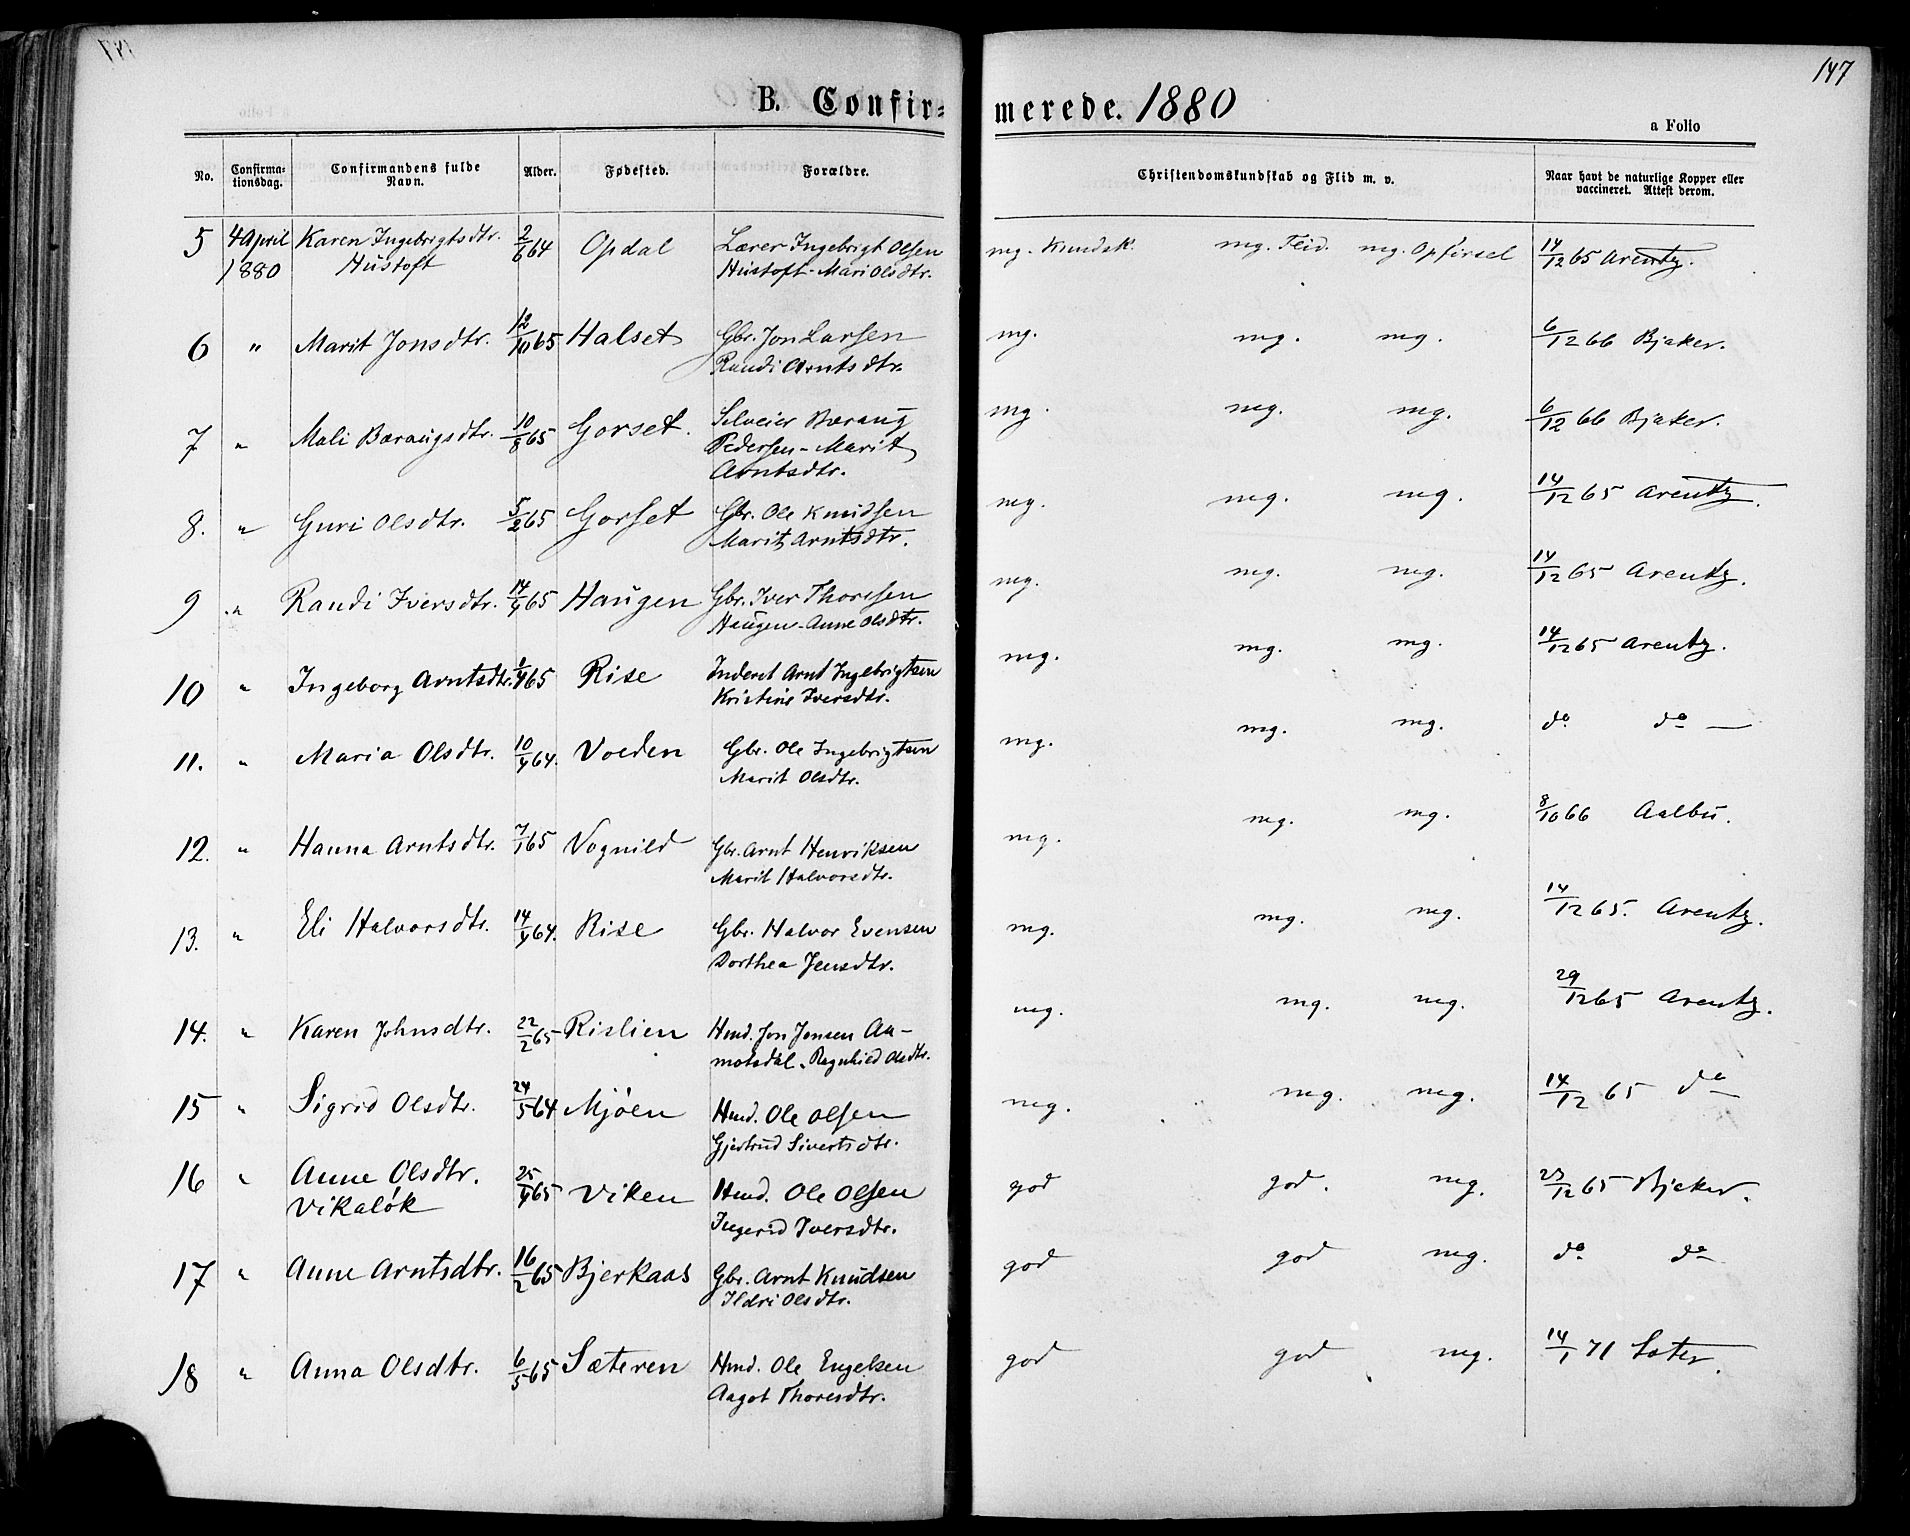 147
B. Confir= merede. 1880
a Folio
No. Confirma-tionsdag. Confirmandens fulde Navn. Alder. Fødested. Forældre. Christendomskundskab og Flid m. v. Naar havt de naturlige Kopper eller vaccineret. Attest derom.
5 4 April Karen Ingebrigtsdtr. 2/6 64 Opdal Lærer Ingebrigt Olsen mg. Kundsk. mg. Flid. mg. Opførsel 14/12 65 Arentz.
1880 Hustoft Hustoft - Mari Olsdtr.
6 " Marit Jonsdtr. 12/10 65 Halset Gbr. Jon Larsen mg. mg. mg. 6/12 66 Bjaker.
Randi Arntsdtr.
7 " Mali Bæraugsdtr. 10/8 65 Gorset. Selveier Bæraug mg. mg. mg. 6/12 66 Bjaker.
Pedersen - Marit
Arntsdtr.
8. " Guri Olsdtr. 5/2 65 Gorset Gbr. Ole Knudsen mg. mg. mg. 14/12 65 Arentz.
Marit Arntsdtr.
9 " Randi Iversdtr. 14/4 65 Haugen Gbr. Iver Thoresen mg. mg. mg. 14/12 65 Arentz.
Haugen - Anne Olsdtr.
10 " Ingeborg Arntsdtr. 1/4 65 Rise Inderst Arnt Ingebrigtsen mg. mg. mg. 14/12 65 Arentz.
Kristine Iversdtr.
11. " Maria Olsdtr. 10/4 64. Voeden Gbr. Ole Ingebrigtsen mg. mg. mg. do do —
Marit Olsdtr.
12. " Hanna Arntsdtr. 7/1 65 Vognild Gbr. Arnt Henriksen mg. mg. mg. 8/10 66 Aalbu.
Marit Halvorsdtr.
13. " Eli Halvorsdtr. 14/4 64. Rise Gbr. Halvor Evensen mg. mg. mg. 14/12 65. Arentz.
Dorthea Jensdtr.
14. " Karen Johnsdtr. 22/2 65 Rislien Hmd. Jon Jonsen Aa- mg. mg. mg. 29/12 65 Arentz.
motsdal. Ragnhild Olsdtr.
15 " Sigrid Olsdtr. 24/5 64 Mjøen Hmd. Ole Olsen mg. mg. mg. 14/12 65 do
Gjertrud Sivertsdtr.
16 " Anne Olsdtr. 25/4 65 Viken Hmd. Ole Olsen god god. mg. 23/12 65 Bjaker.
Vikaløk Ingerid Iversdtr.
17 " Anne Arntsdtr. 16/2 65 Bjerkaas Gbr. Arnt Knudsen god god mg. do do
Ildri Olsdtr.
18 " Anna Olsdtr. 6/5 65 Sæteren Hmd. Ole Engelsen god god mg. 14/1 71 Sater.
Aagot Thoresdtr.